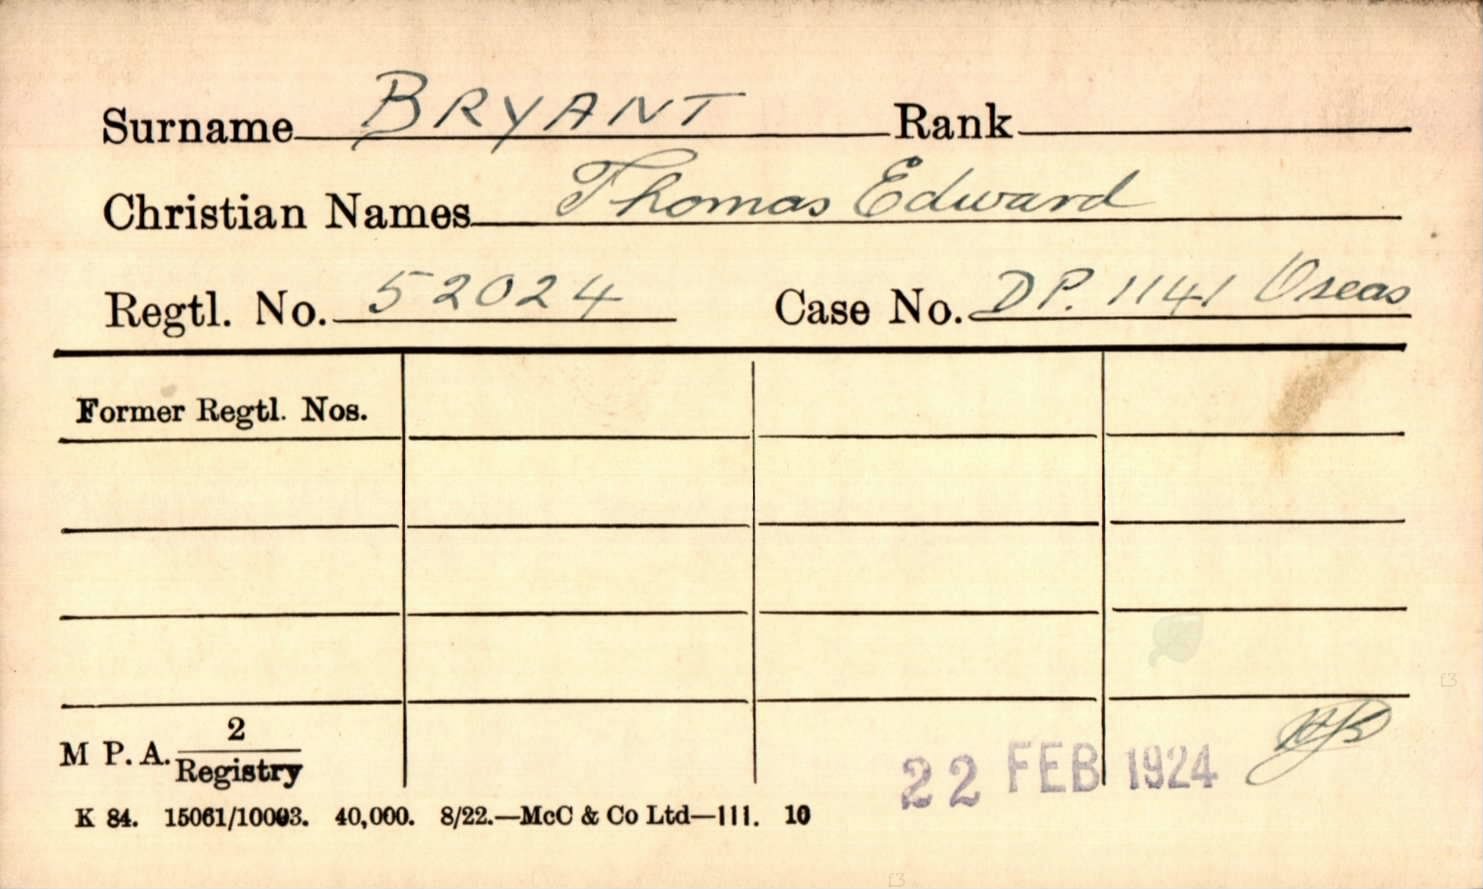 Surname BRYANT Rank
Christian Names Thomas Edward
Regtl. No. 52024 Case No. DP. 1141 O'seas
Former Regtl. Nos.
M P. A. 2
Registry
22 FEB 1924
K 84. 15061/10093. 40,000. 8/22.—McC & Co Ltd—111. 10